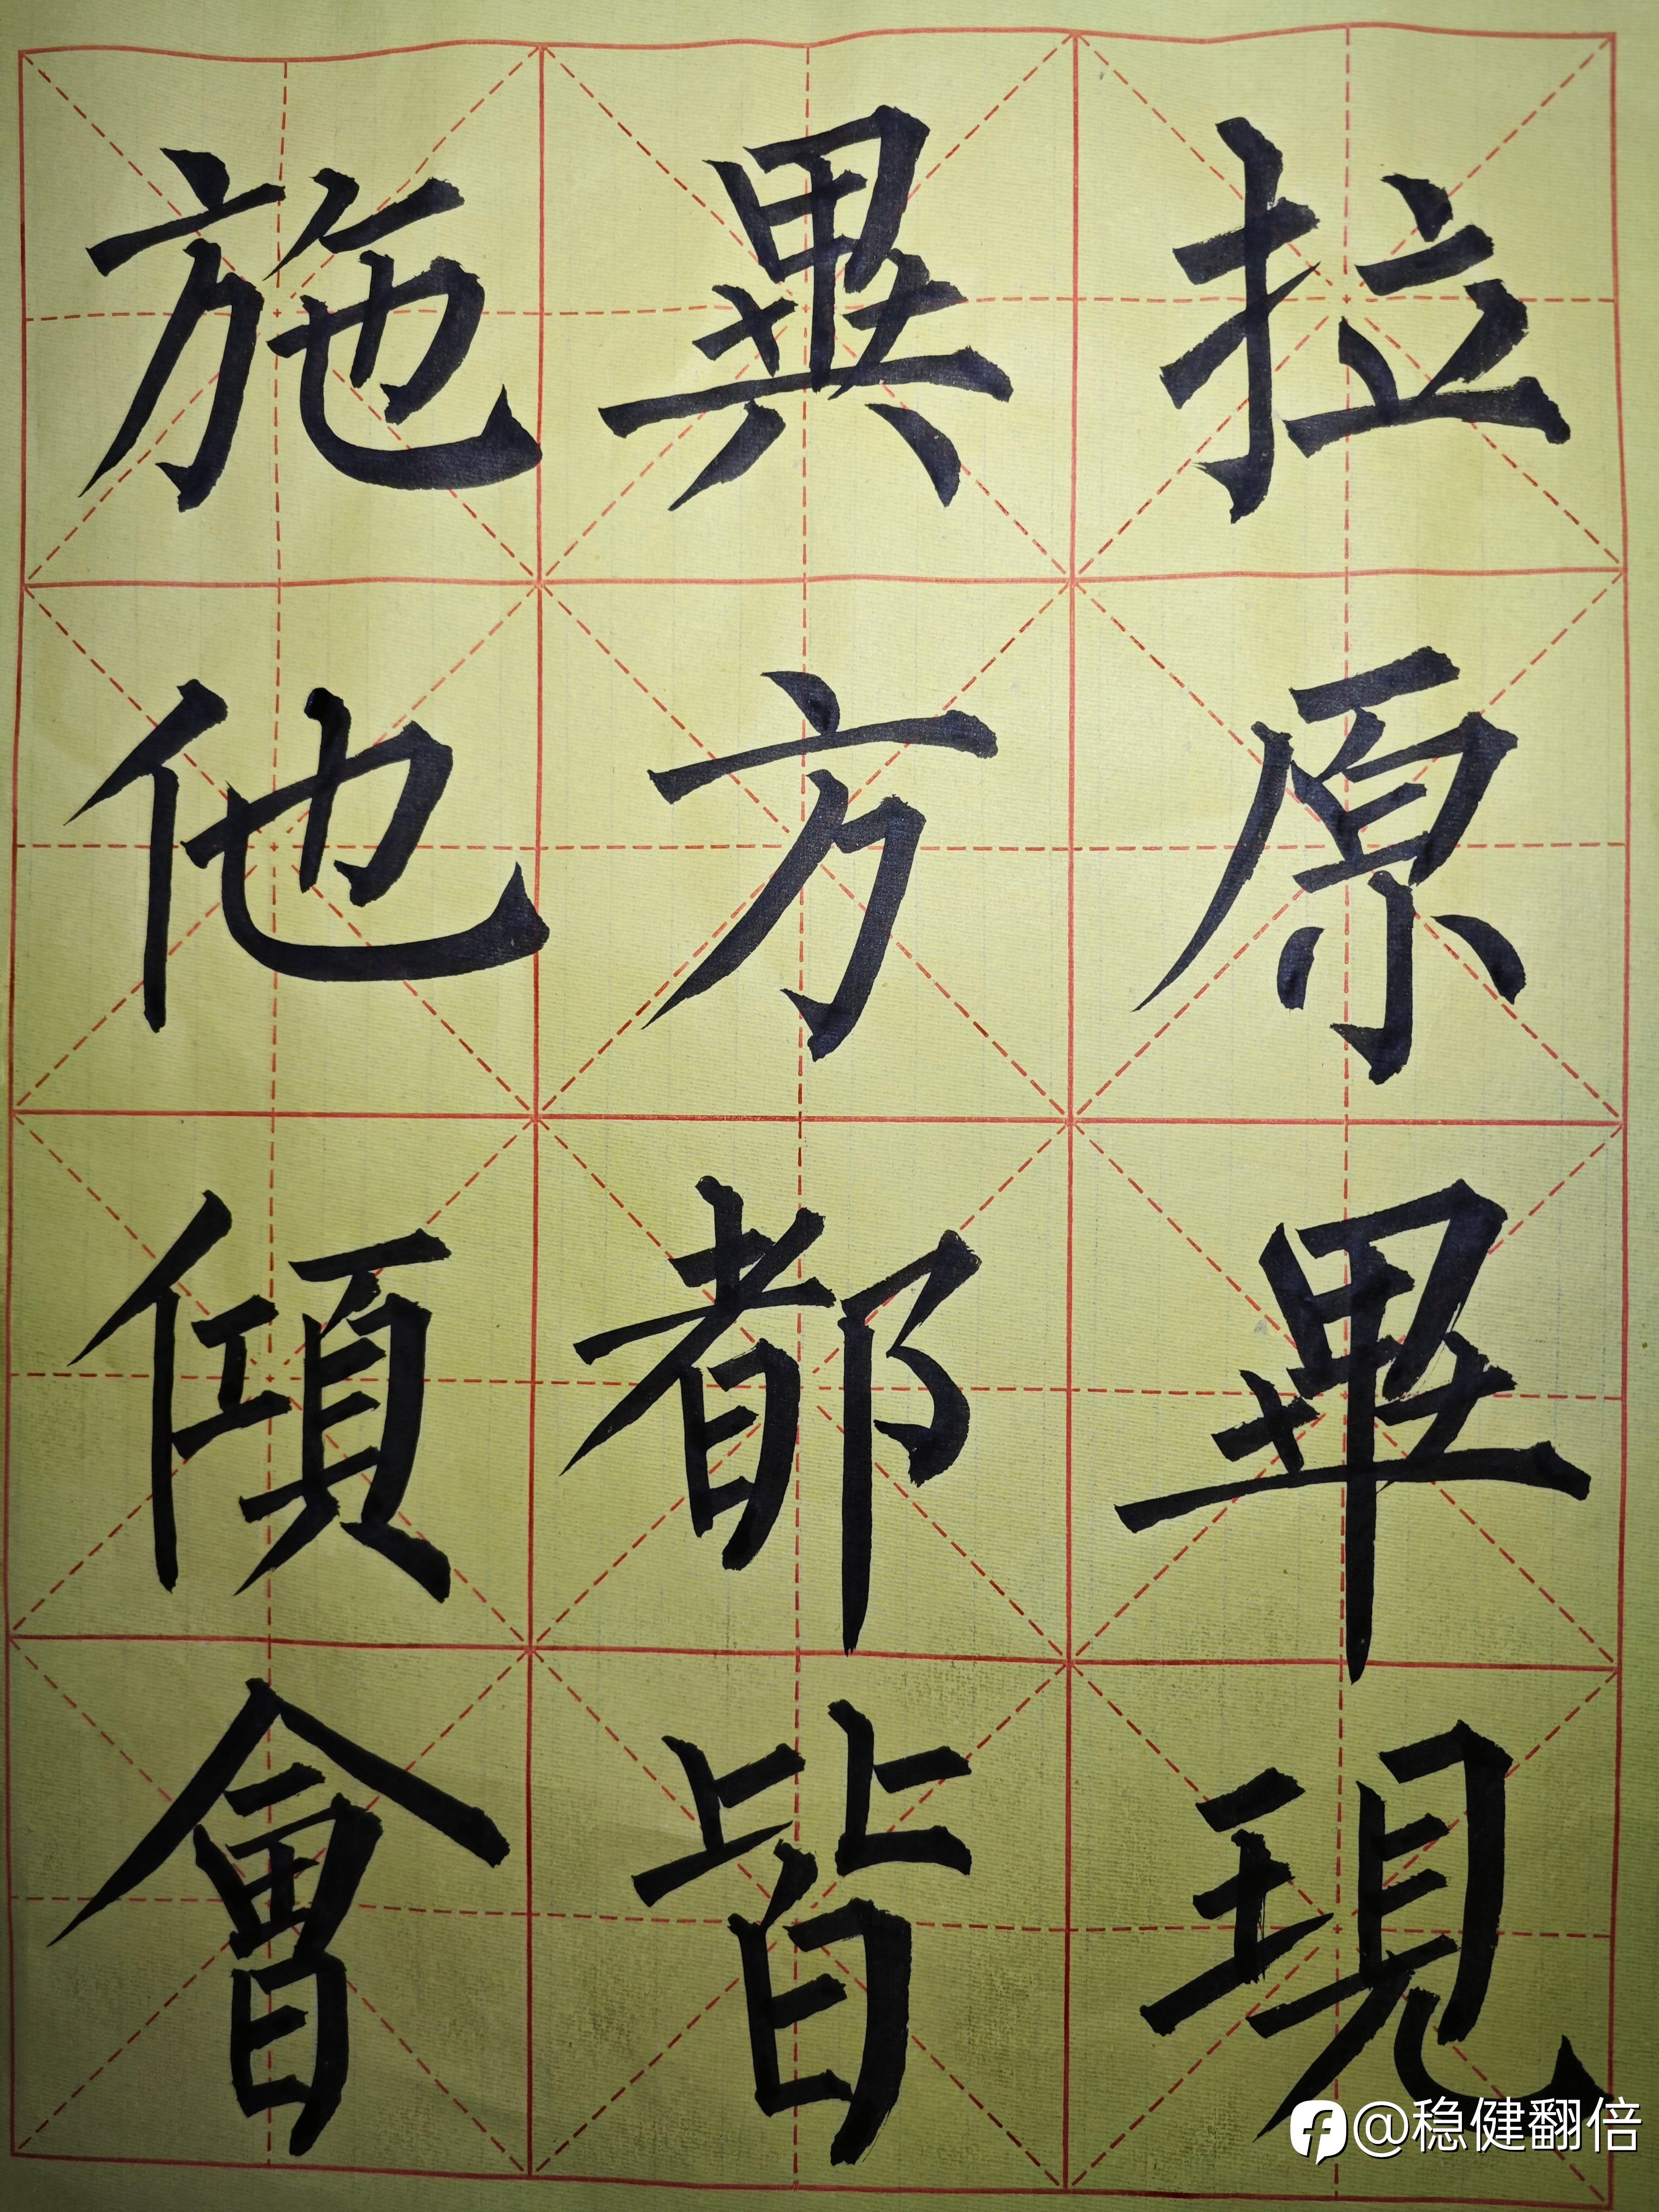 拉原畢現
異方都皆
施他傾會
@稳健翻倍